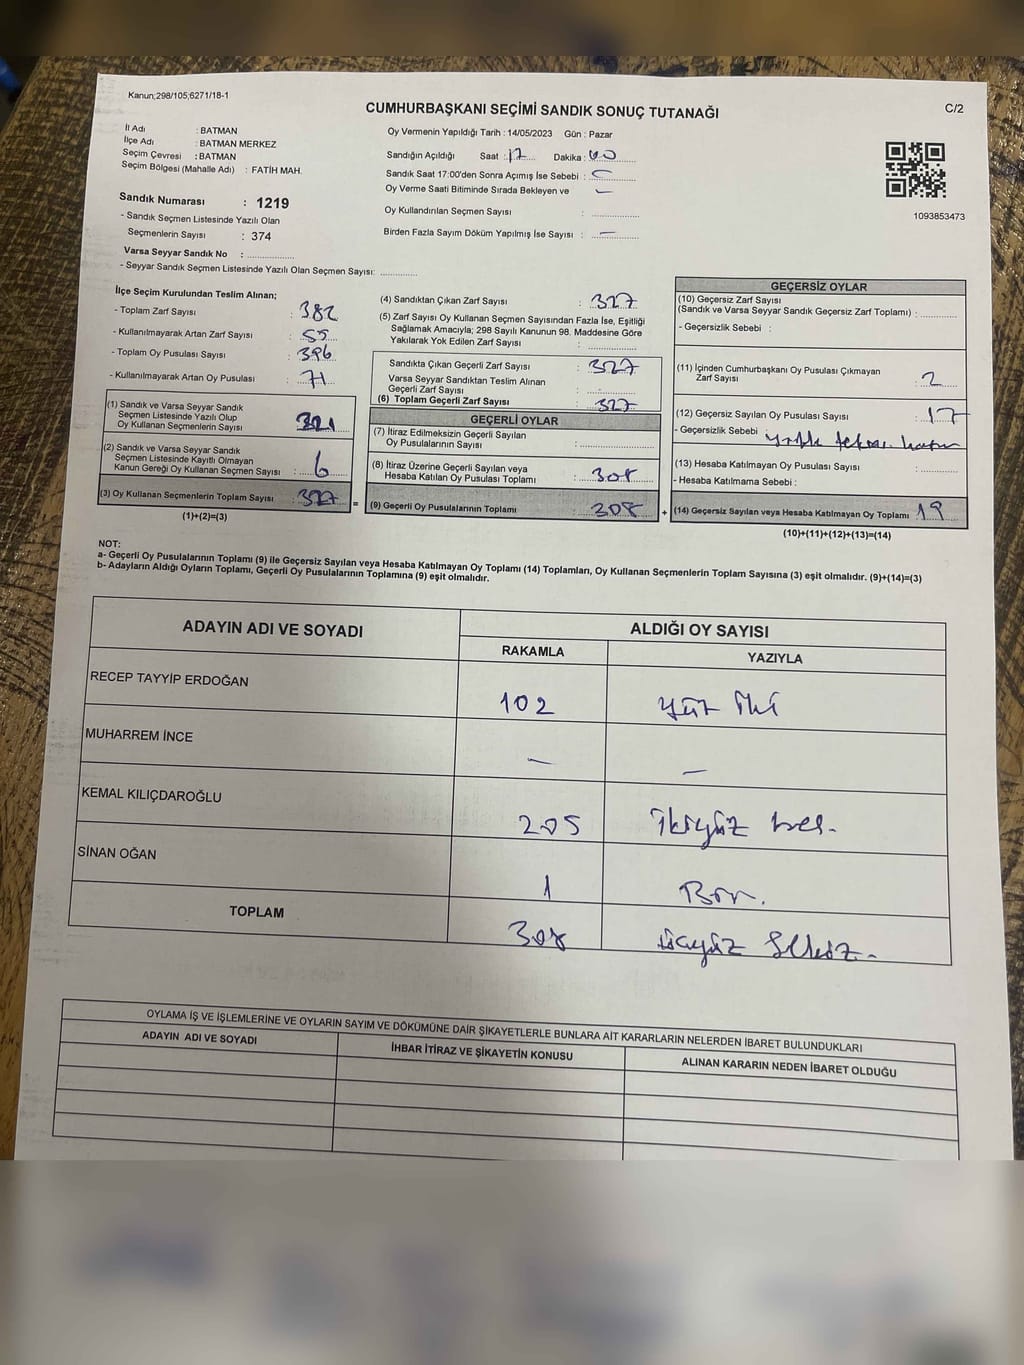 Kanun;298/105;6271/18-1
CUMHURBAŞKANI SEÇİMİ SANDIK SONUÇ TUTANAĞI
C/2
İl Adı : BATMAN
İlçe Adı : BATMAN MERKEZ
Seçim Çevresi : BATMAN
Seçim Bölgesi (Mahalle Adı) : FATİH MAH.
Sandık Numarası : 1219
- Sandık Seçmen Listesinde Yazılı Olan
Seçmenlerin Sayısı : 374
Varsa Seyyar Sandık No :
- Seyyar Sandık Seçmen Listesinde Yazılı Olan Seçmen Sayısı:
Oy Vermenin Yapıldığı Tarih : 14/05/2023 Gün : Pazar
Sandığın Açıldığı Saat : 17 Dakika : 00
Sandık Saat 17:00'den Sonra Açımış İse Sebebi : -
Oy Verme Saati Bitiminde Sırada Bekleyen ve -
Oy Kullandırılan Seçmen Sayısı :
Birden Fazla Sayım Döküm Yapılmış İse Sayısı : -
1093853473
İlçe Seçim Kurulundan Teslim Alınan;
- Toplam Zarf Sayısı : 382
- Kullanılmayarak Artan Zarf Sayısı : 55
- Toplam Oy Pusulası Sayısı : 396
- Kullanılmayarak Artan Oy Pusulası : 71
(1) Sandık ve Varsa Seyyar Sandık
Seçmen Listesinde Yazılı Olup
Oy Kullanan Seçmenlerin Sayısı : 321
(2) Sandık ve Varsa Seyyar Sandık
Seçmen Listesinde Kayıtlı Olmayan
Kanun Gereği Oy Kullanan Seçmen Sayısı : 6
(3) Oy Kullanan Seçmenlerin Toplam Sayısı : 327
(1)+(2)=(3)
(4) Sandıktan Çıkan Zarf Sayısı : 327
(5) Zarf Sayısı Oy Kullanan Seçmen Sayısından Fazla İse, Eşitliği
Sağlamak Amacıyla; 298 Sayılı Kanunun 98. Maddesine Göre
Yakılarak Yok Edilen Zarf Sayısı :
Sandıkta Çıkan Geçerli Zarf Sayısı : 327
Varsa Seyyar Sandıktan Teslim Alınan
Geçerli Zarf Sayısı :
(6) Toplam Geçerli Zarf Sayısı : 327
GEÇERLİ OYLAR
(7) İtiraz Edilmeksizin Geçerli Sayılan
Oy Pusulalarının Sayısı :
(8) İtiraz Üzerine Geçerli Sayılan veya
Hesaba Katılan Oy Pusulası Toplamı : 308
(9) Geçerli Oy Pusulalarının Toplamı : 308
GEÇERSİZ OYLAR
(10) Geçersiz Zarf Sayısı
(Sandık ve Varsa Seyyar Sandık Geçersiz Zarf Toplamı) :
- Geçersizlik Sebebi :
(11) İçinden Cumhurbaşkanı Oy Pusulası Çıkmayan
Zarf Sayısı : 2
(12) Geçersiz Sayılan Oy Pusulası Sayısı : 17
- Geçersizlik Sebebi :
(13) Hesaba Katılmayan Oy Pusulası Sayısı :
- Hesaba Katılmama Sebebi :
(14) Geçersiz Sayılan veya Hesaba Katılmayan Oy Toplamı : 19
(10)+(11)+(12)+(13)=(14)
NOT:
a- Geçerli Oy Pusulalarının Toplamı (9) ile Geçersiz Sayılan veya Hesaba Katılmayan Oy Toplamı (14) Toplamları, Oy Kullanan Seçmenlerin Toplam Sayısına (3) eşit olmalıdır. (9)+(14)=(3)
b- Adayların Aldığı Oyların Toplamı, Geçerli Oy Pusulalarının Toplamına (9) eşit olmalıdır.
ADAYIN ADI VE SOYADI
ALDIĞI OY SAYISI
RAKAMLA YAZIYLA
RECEP TAYYİP ERDOĞAN 102 yüz iki
MUHARREM İNCE - -
KEMAL KILIÇDAROĞLU 205 ikiyüz beş.
SİNAN OĞAN 1 Bir.
TOPLAM 308 üçyüz Sekiz.
OYLAMA İŞ VE İŞLEMLERİNE VE OYLARIN SAYIM VE DÖKÜMÜNE DAİR ŞİKAYETLERLE BUNLARA AİT KARARLARIN NELERDEN İBARET BULUNDUKLARI
ADAYIN ADI VE SOYADI İHBAR İTİRAZ VE ŞİKAYETİN KONUSU ALINAN KARARIN NEDEN İBARET OLDUĞU